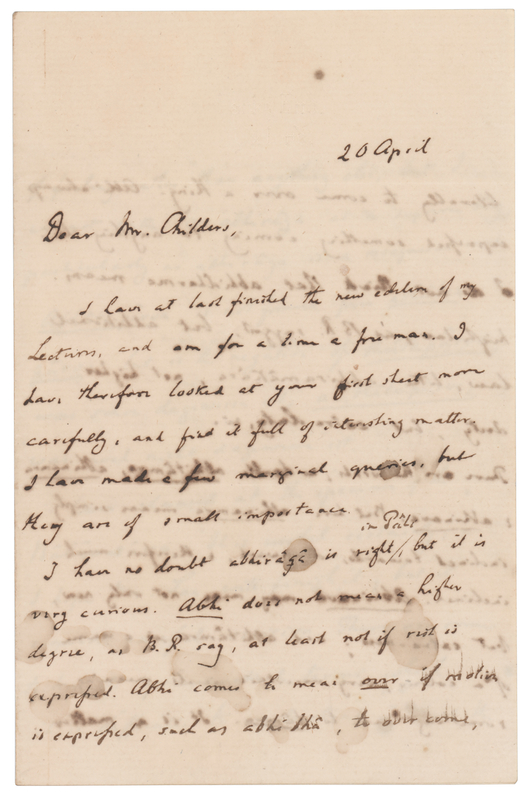 20 April
Dear Mr. Childers,
I have at last finished the new edition of my
Lectures, and am for a time a free man. I
have therefore looked at your first sheet more
carefully, and find it full of interesting matter.
I have made a few marginal queries, but
they are of small importance.
in Pâli
I have no doubt abhirâgâ is right, but it is
very curious. Abhi does not mean a higher
degree, as B. R. say, at least not if rest is
expressed. Abhi comes to mean over if motion
is expressed, such as abhibhû, to over come,